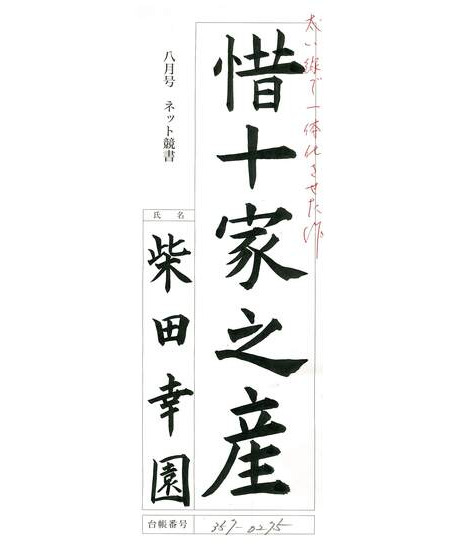 太い線で一体化させた作
惜十家之産
八月号 ネット競書
氏 名
柴田幸園
台帳番号 357-0275